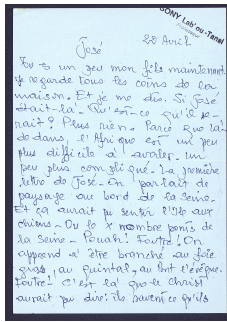 SONY Lab'ou-Tansi
20 Avril
José
Tu es un peu mon fils maintenant.
Je regarde tous les coins de la
maison. Et je me dis. Si José
était-là. Qu'est-ce qu'il se-
rait? Plus rien. Parce que là-
dedans, l'Afrique est un peu
plus difficile à avaler. un
peu plus compliqué. La première
lettre de José. On parlait de
paysage au bord de la Seine.
Et ça aurait pu sentir l'île aux
chiens. Ou le x nombre ponts de
la Seine. Pouah! Foutre! On
apprend à être branché au foie
gras, au quintal, au Pont l'évêque.
Foutre! C'est là que le Christ
aurait pu dire: ils savent ce qu'ils